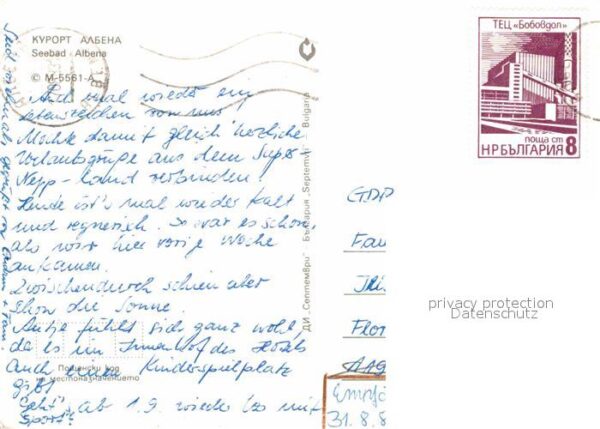 КУРОРТ АЛБЕНА
Seebad - Albena
© М-5581-А
Auch mal wieder ein
Lebenszeichen von uns
Möchte damit gleich herzliche
Urlaubsgrüße aus dem Super-
Nepp-Land verbinden!
Heute ist's mal wieder kalt
und regnerisch. So war es schon,
als wir hier vorige Woche
ankamen.
Zwischendurch schien aber
schon die Sonne.
Antje fühlt sich ganz wohl,
da es im Innenhof des Hotels
auch einen Kinderspielplatz
gibt
Geht's ab 1.9. wieder los mit
Sport?
Пощенски код
на местоназначението
Seid nochmals gegrüßt von
+ Fam.
ДИ „Септември" България „Septemvri" Bulgaria
ТЕЦ „Бобовдол"
поща ст 8
НР БЪЛГАРИЯ
GDR
Fa
Flor
Empf
31.8.8
privacy protection
Datenschutz